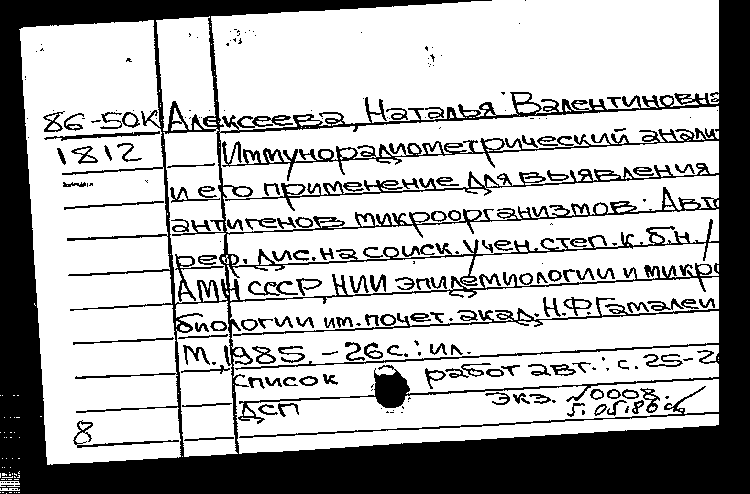 86-50К Алексеева, Наталья Валентиновна
1812 Иммунорадиометрический анали
и его применение для выявления
антигенов микроорганизмов: Авто
реф. дис. на соиск. учен. степ. к.б.н. /
АМН СССР, НИИ эпидемиологии и микро
биологии им. почет. акад. Н.Ф. Гамалеи
М., 1985. - 26 с. : ил.
список работ авт.: с. 25-26
ДСП экз. √0008.
8 5.05.86